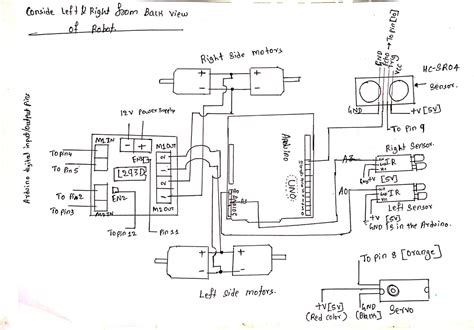 Conside Left & Right from Back view
of Robot.
Right side motors
To Pin[10]
GND
Echo
Trig
VCC
HC-SR04
Sensor.
GND
+V [5V]
To Pin 9
12V Power Supply
M1IN
M1OUT
To Pin4
To Pin 5
To Pin2
To Pin3
L293D
EN2
M2IN
M2OUT
To Pin 12
Pin 11
Arduino digital input/output pins
Arduino
UNO
A0
A5
Right Sensor.
IR
+V
[5V]
A0
IR
+V [5V]
Left Sensor
GND is in the Arduino.
Left side motors.
To Pin 8 [Orange]
+V[5V]
(Red color)
GND
(Black)
Servo